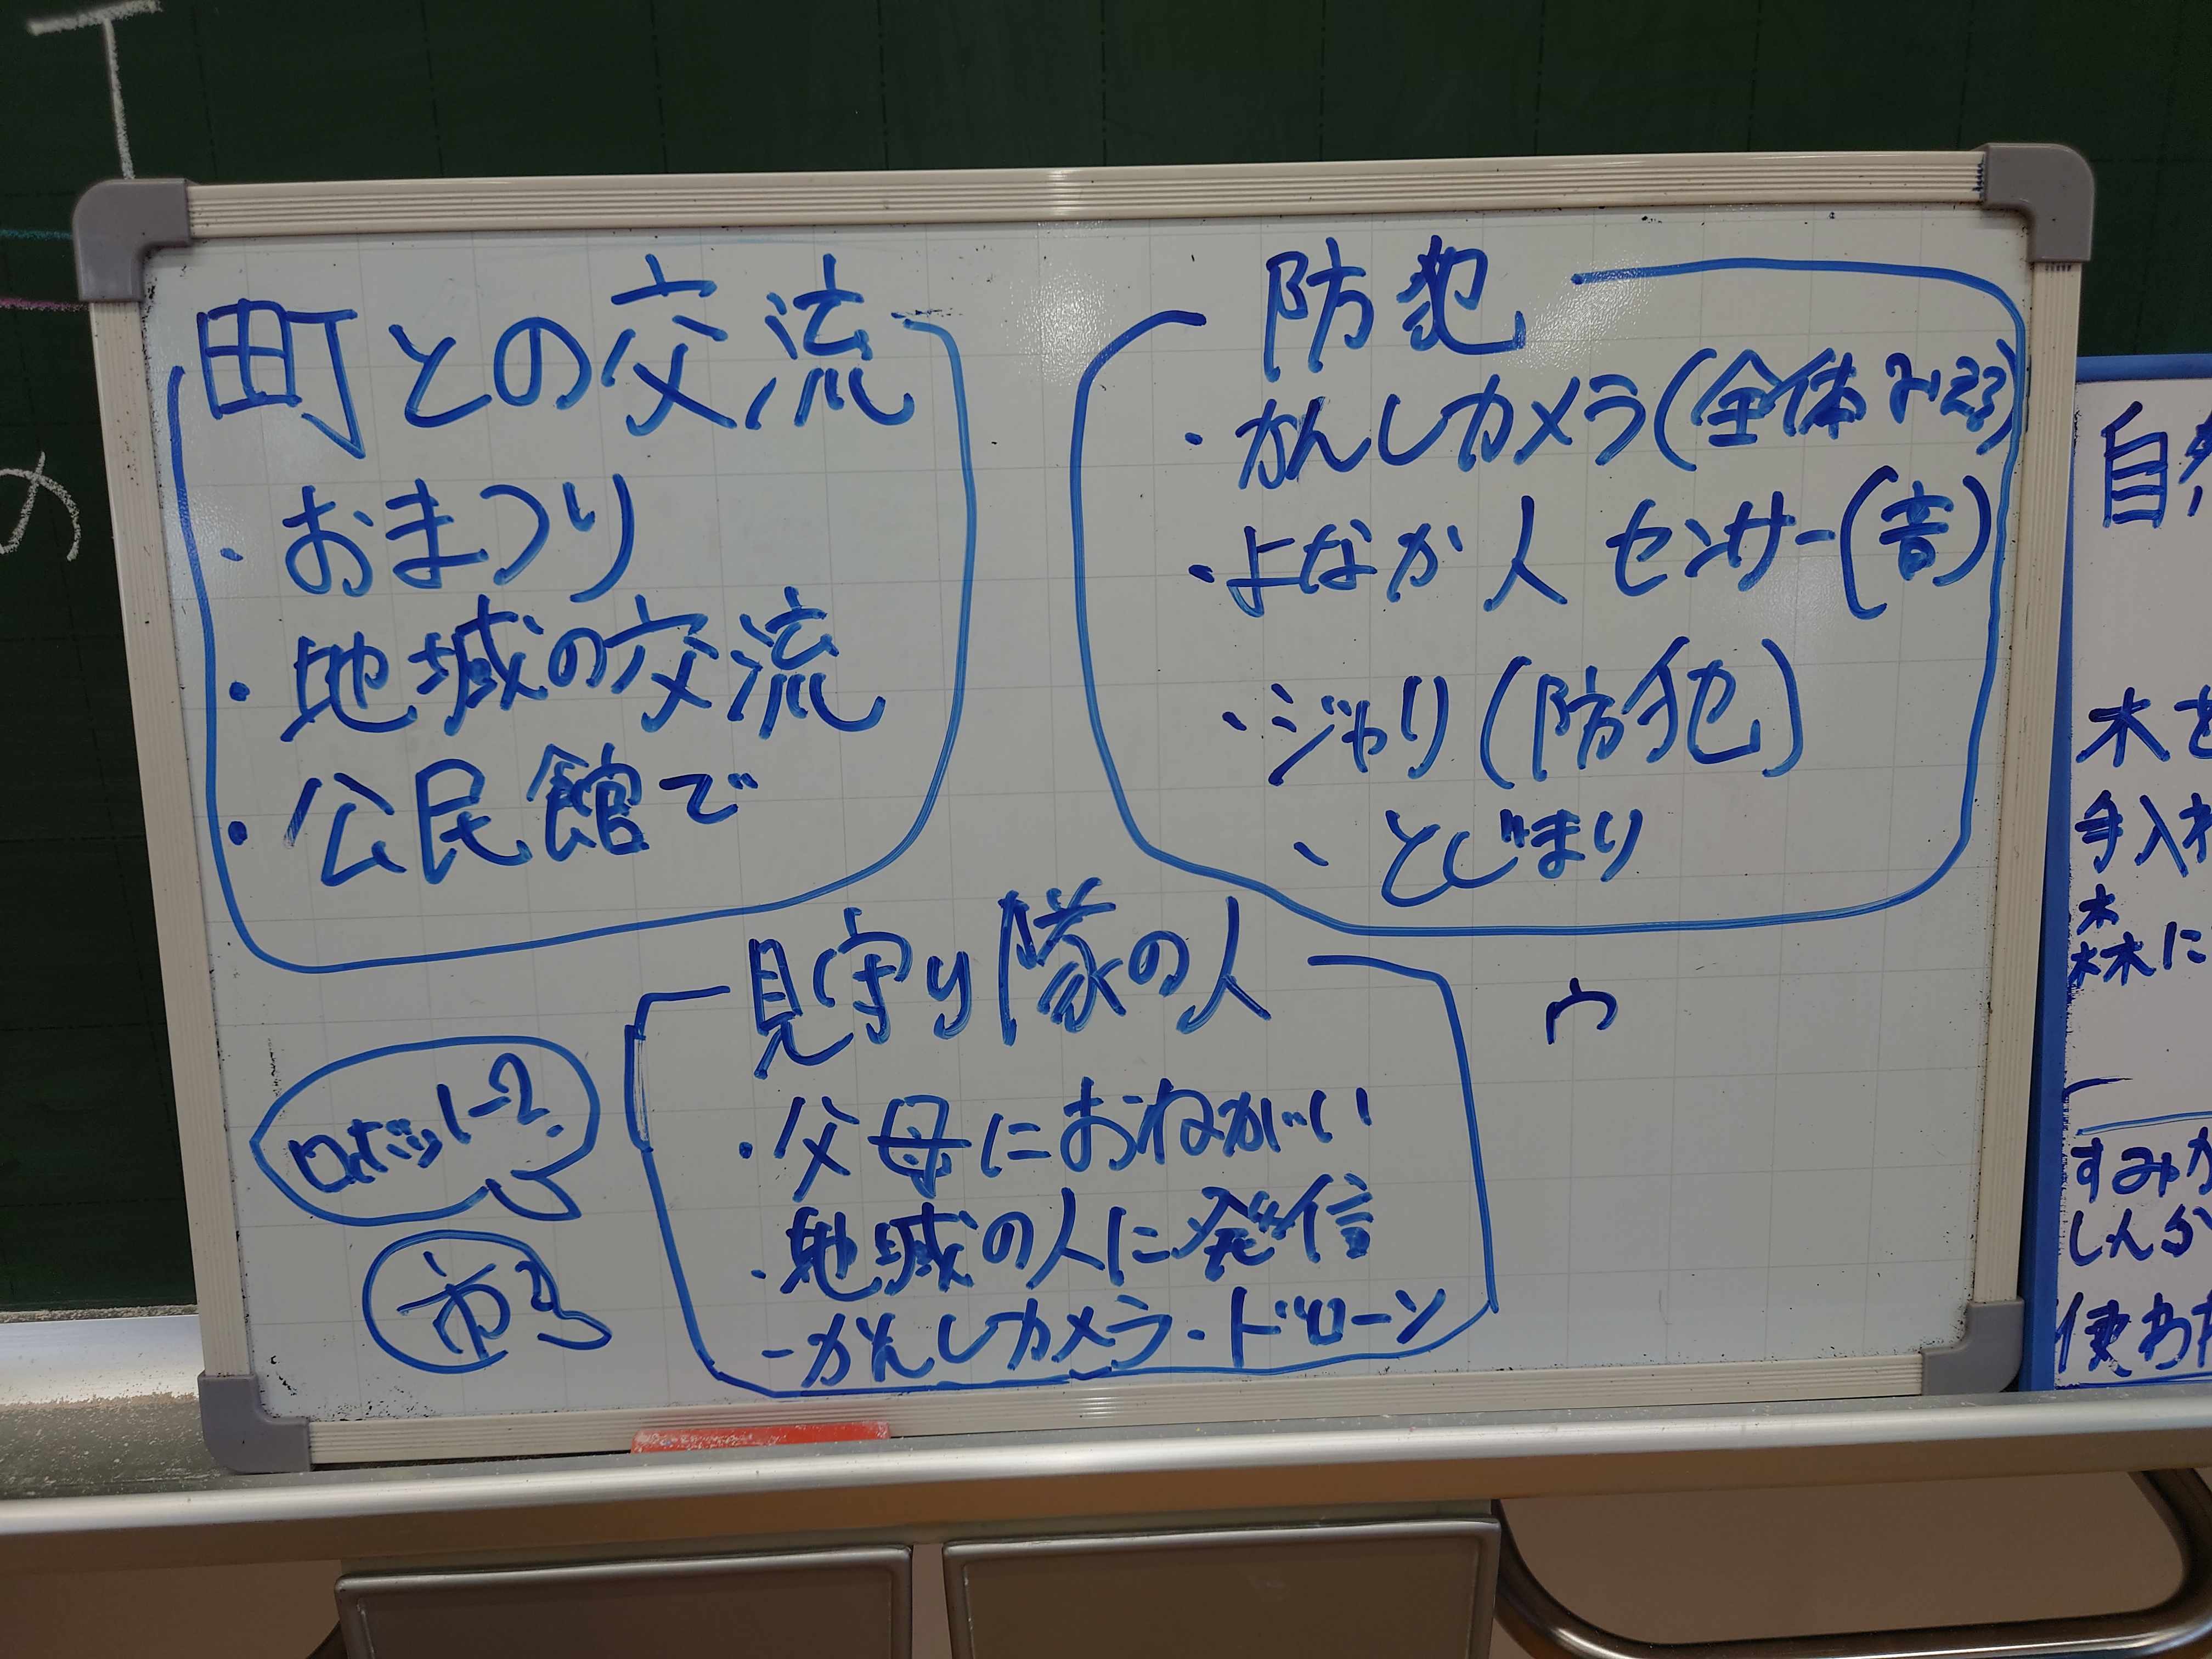 町との交流
・おまつり
・地域の交流
・公民館で
防犯
・かんしカメラ(全体みえる)
・よなか人センサー(音)
・ジャリ(防犯)
、とじまり
見守り隊の人
・父母におねがい
・地域の人に発信
-かんしカメラ・ドローン
ロボット?
市
ウ
の
自然
木を
手入れ
森に
すみか
しんか
使わ